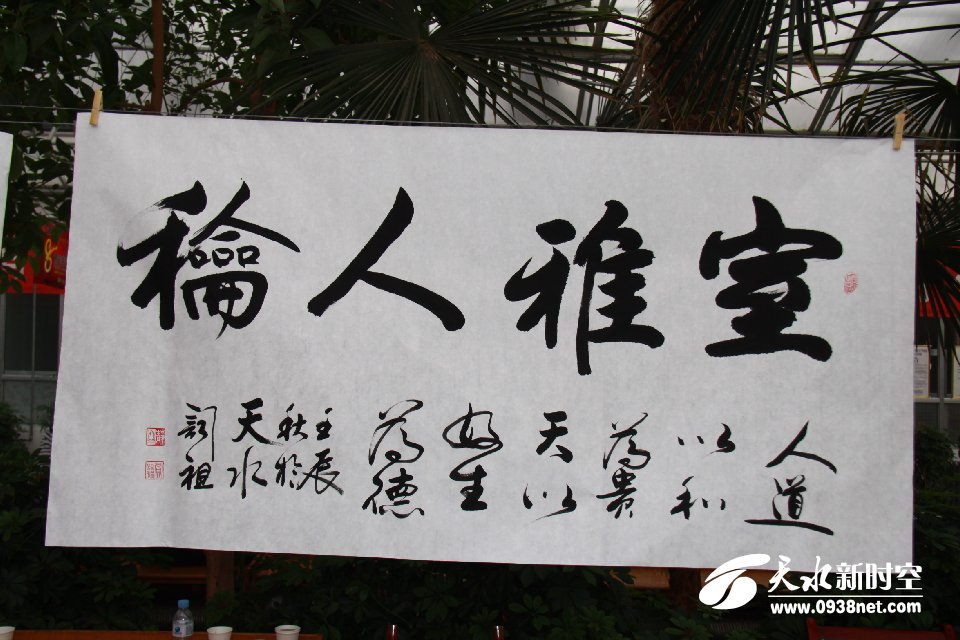 室雅人龢
人道
以和
為貴
天以
好生
為德
壬辰
秋於
天水
天水新时空
www.0938net.com